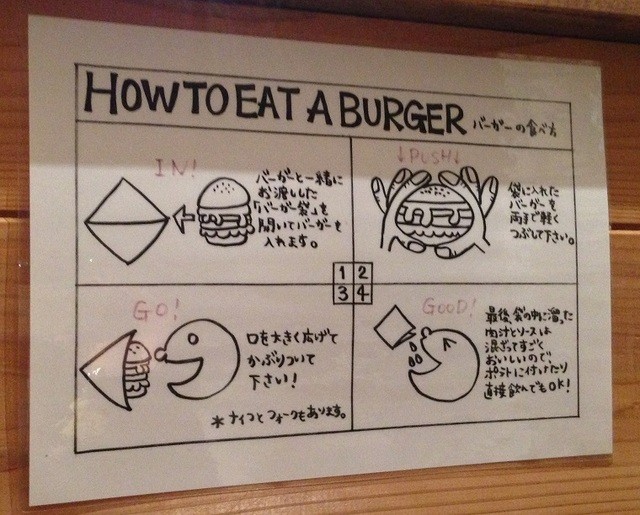 HOW TO EAT A BURGER バーガーの食べ方
IN!
バーガーと一緒に
お渡しした
「バーガー袋」を
開いてバーガーを
入れます。
↓PUSH↓
袋に入れた
バーガーを
両手で軽く
つぶして下さい。
1 2
3 4
GO!
口を大きく広げて
かぶりついて
下さい!
*ナイフとフォークもあります。
GOOD!
最後、袋の中に溜った
肉汁とソースは
混ざってすごく
おいしいので、
ポテトに付けたり
直接飲んでもOK!